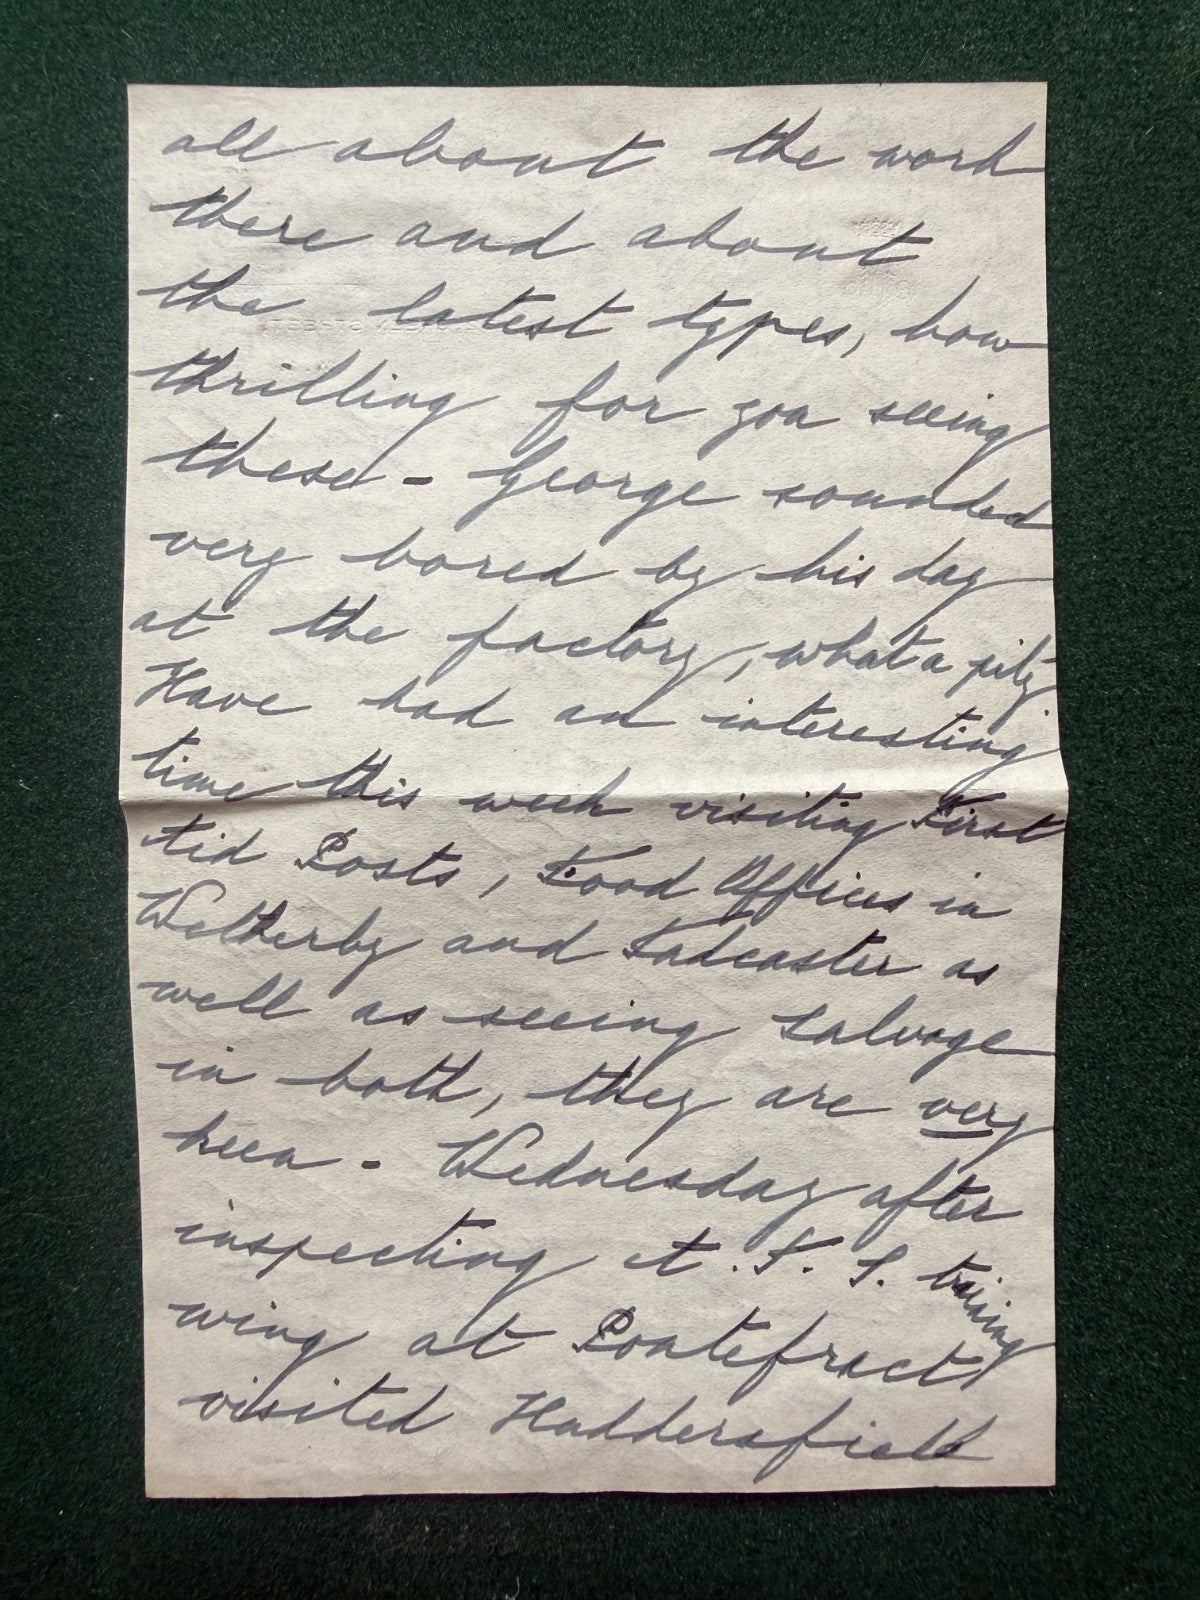 all about the work
there and about
the latest types, how
thrilling for you seeing
these - George sounded
very bored by his day
at the factory, what a pity.
Have had an interesting
time this week visiting First
Aid Posts, Food Offices in
Wetherby and Tadcaster as
well as seeing salvage
in both, they are very
keen - Wednesday after
inspecting A.T.S. training
wing at Pontefract
visited Huddersfield